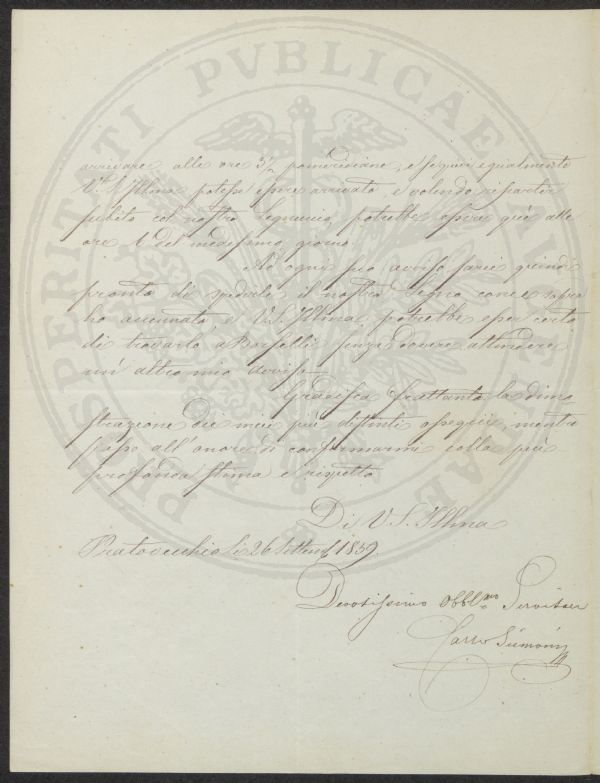 PROSPERITATI PVBLICAE AVGENDAE
arrivare alle ore 3½ pomeridiane, e seppur egualmente
V. S. Illma potesse essere arrivata, e volendo ripartir
subito col nostro Legno, potrebbe essere quà alle
ore 6 del medesimo giorno.
Ad ogni suo avviso sarei quindi
pronto di spedirle il nostro Legno come sopra
ho accennato, e V. S. Illma potrebbe esser certa
di trovarlo a senza dovere attendere
un' altro mio avviso.
Gradisca frattanto la dimo
strazione dei miei più distinti ossequi, mentre
passo all' onore di confermarmi colla più
profonda stima e rispetto
Di V. S. Illma
Pratovecchio li 26 Settemb 1859.
Devotissimo Obblmo Servitore
Carlo Siemoni